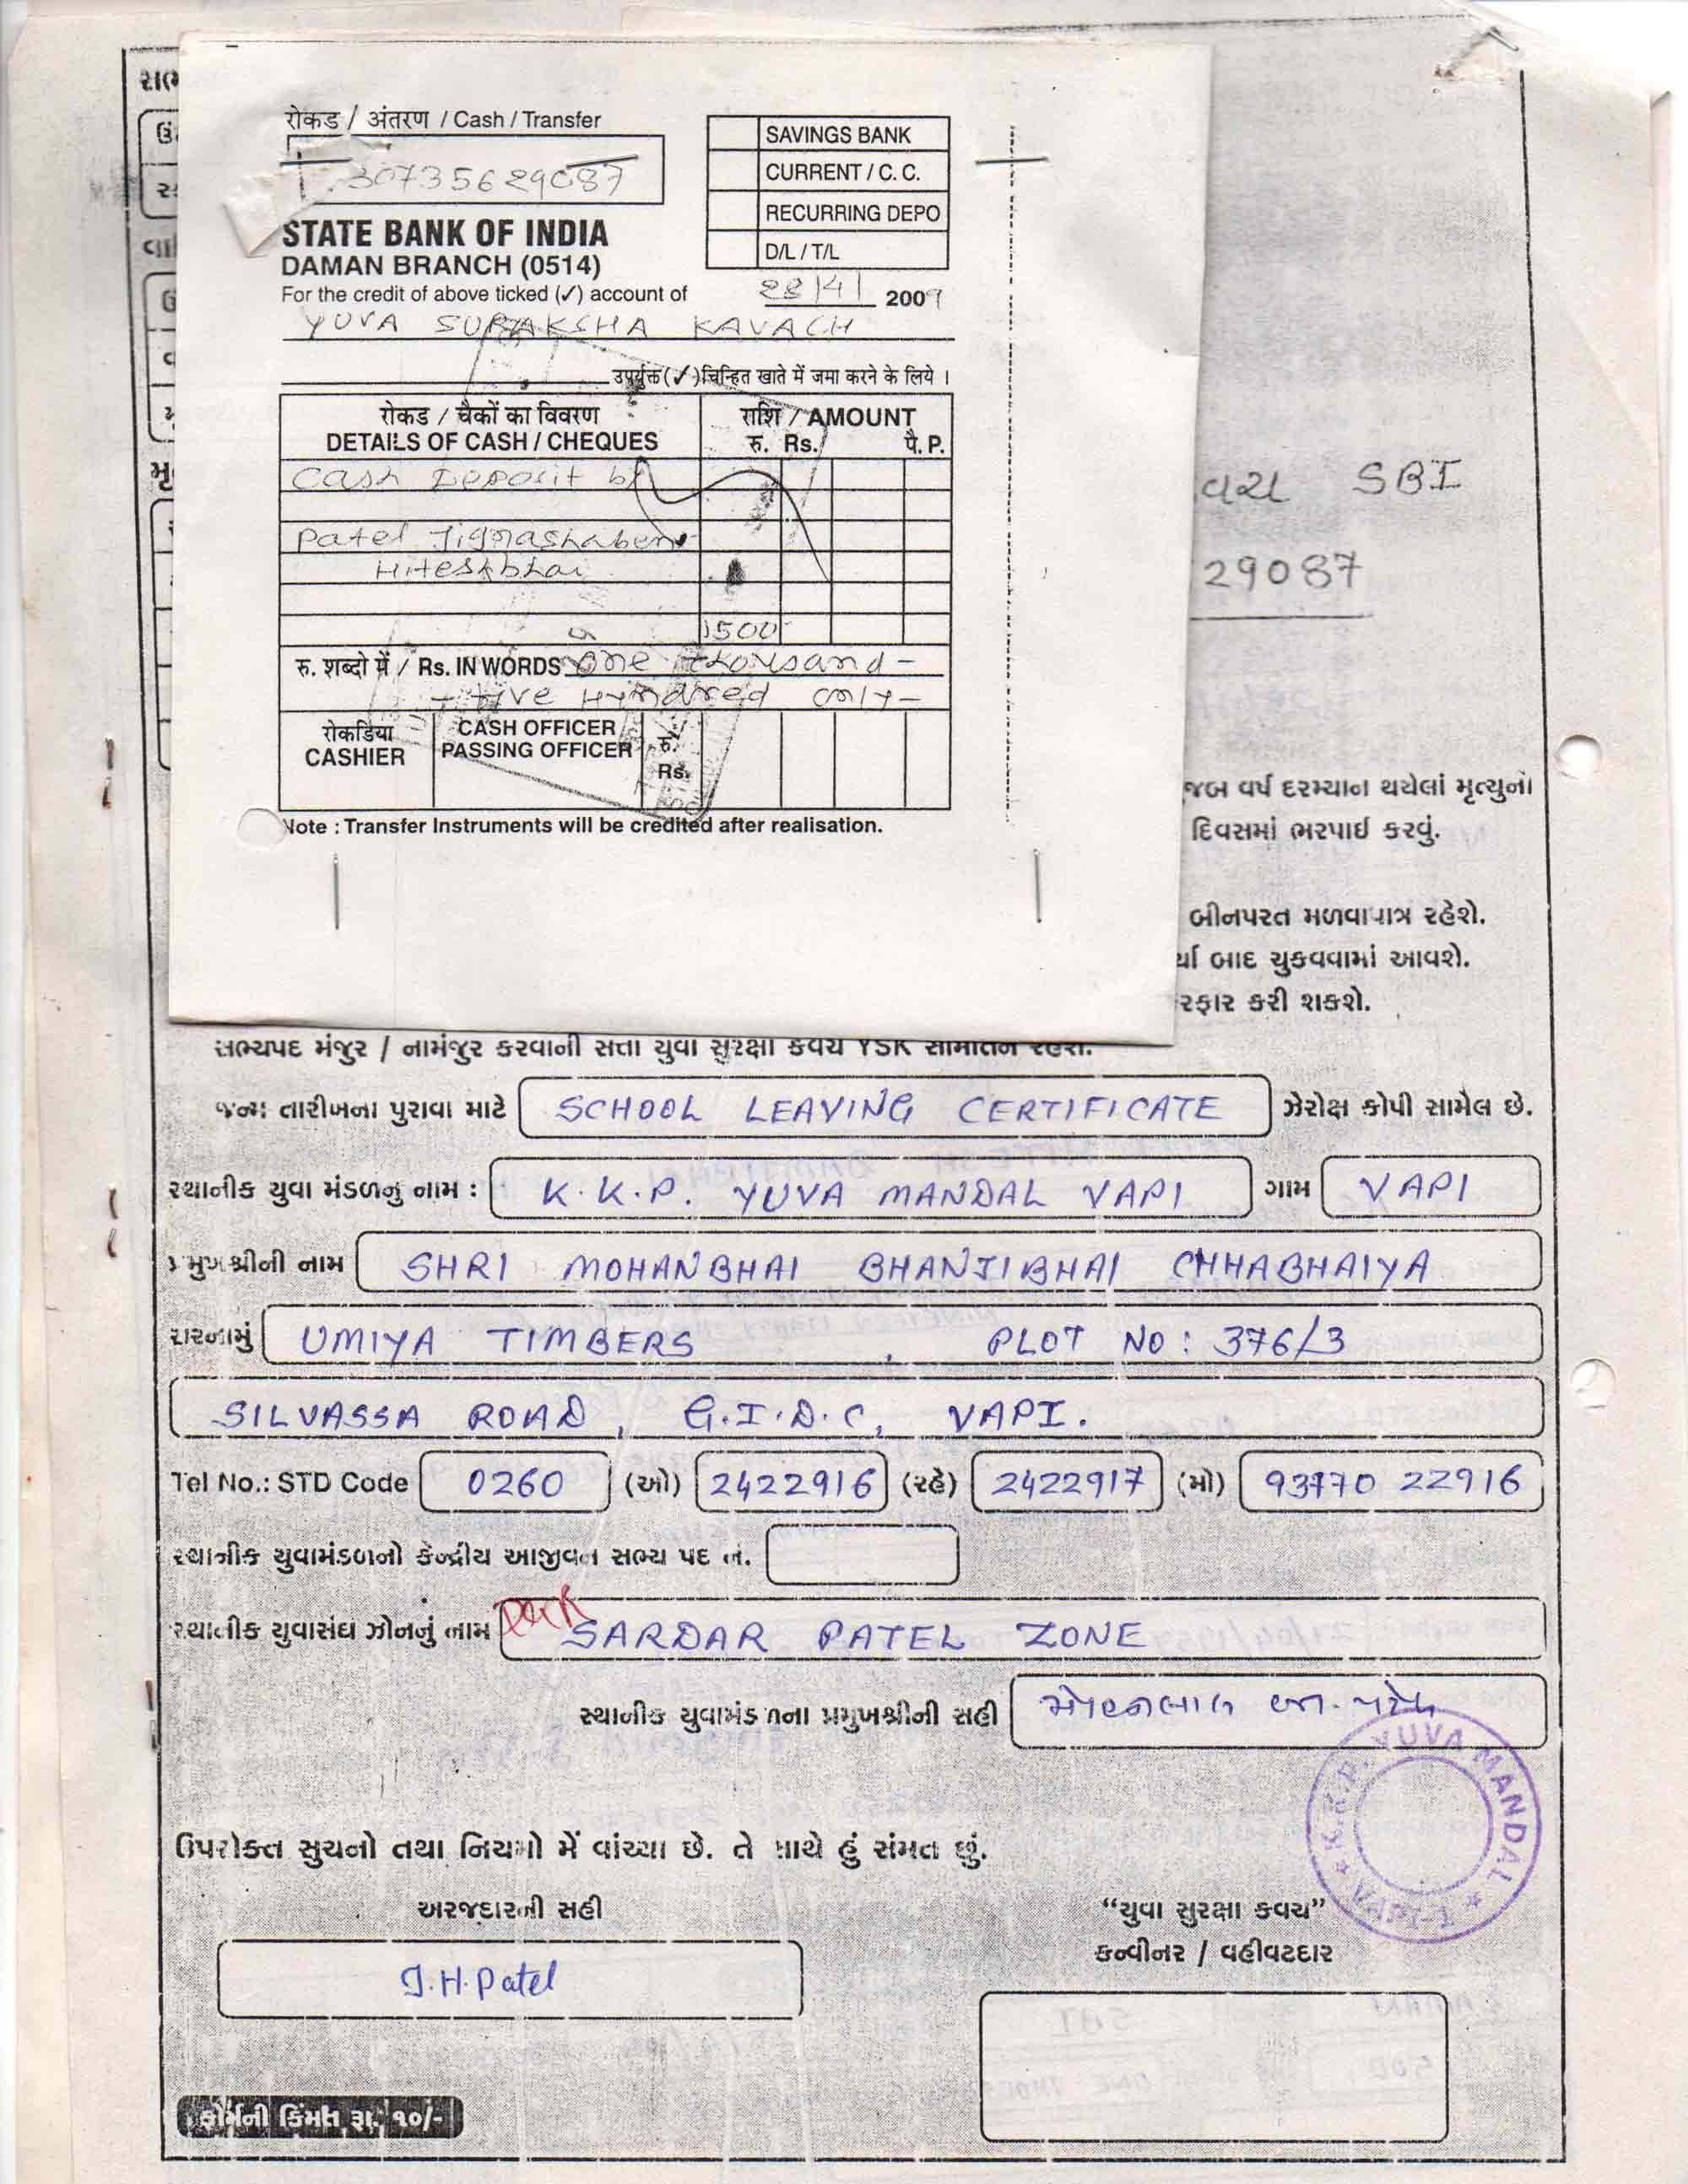 रोकड / अंतरण / Cash / Transfer
30735629087
SAVINGS BANK
CURRENT / C. C.
RECURRING DEPO
D/L / T/L
STATE BANK OF INDIA
DAMAN BRANCH (0514)
For the credit of above ticked (✓) account of 28/4/ 2009
YUVA SURAKSHA KAVACH
उपर्युक्त (✓) चिन्हित खाते में जमा करने के लिये ।
रोकड / चैकों का विवरण राशि / AMOUNT
DETAILS OF CASH / CHEQUES रु. Rs. पै. P.
Cash Deposit by
Patel Jignashaben
Hiteshbhai
1500
रु. शब्दो में / Rs. IN WORDS One thousand -
- Five Hundred only -
रोकडिया CASH OFFICER रु.
CASHIER PASSING OFFICER Rs.
Note : Transfer Instruments will be credited after realisation.
SBI
29087
વર્ષ દરમ્યાન થયેલાં મૃત્યુનો
દિવસમાં ભરપાઈ કરવું.
બીનપરત મળવાપાત્ર રહેશે.
બાદ ચુકવવામાં આવશે.
કરી શકશે.
સભ્યપદ મંજુર / નામંજુર કરવાની સત્તા યુવા સુરક્ષા કવચ YSK
જન્મ તારીખના પુરાવા માટે SCHOOL LEAVING CERTIFICATE ઝેરોક્ષ કોપી સામેલ છે.
સ્થાનીક યુવા મંડળનુ નામ : K.K.P. YUVA MANDAL VAPI ગામ VAPI
પ્રમુખશ્રીની નામ SHRI MOHANBHAI BHANJIBHAI CHHABHAIYA
સરનામું UMIYA TIMBERS , PLOT NO : 376/3
SILVASSA ROAD , G.I.D.C, VAPI.
Tel No.: STD Code 0260 (ઓ) 2422916 (રહે) 2422917 (મો) 93770 22916
સ્થાનીક યુવામંડળનો કેન્દ્રીય આજીવન સભ્ય પદ નં.
સ્થાનીક યુવાસંઘ ઝોનનું નામ SARDAR PATEL ZONE
સ્થાનીક યુવામંડળના પ્રમુખશ્રીની સહી
K.K.P. YUVA MANDAL
ઉપરોક્ત સુચનો તથા નિયમો મેં વાંચ્યા છે. તે સાથે હું સંમત છું.
અરજદારની સહી
J.H.Patel
“યુવા સુરક્ષા કવચ”
કન્વીનર / વહીવટદાર
ફોર્મની કિંમત રૂા. ૧૦/-